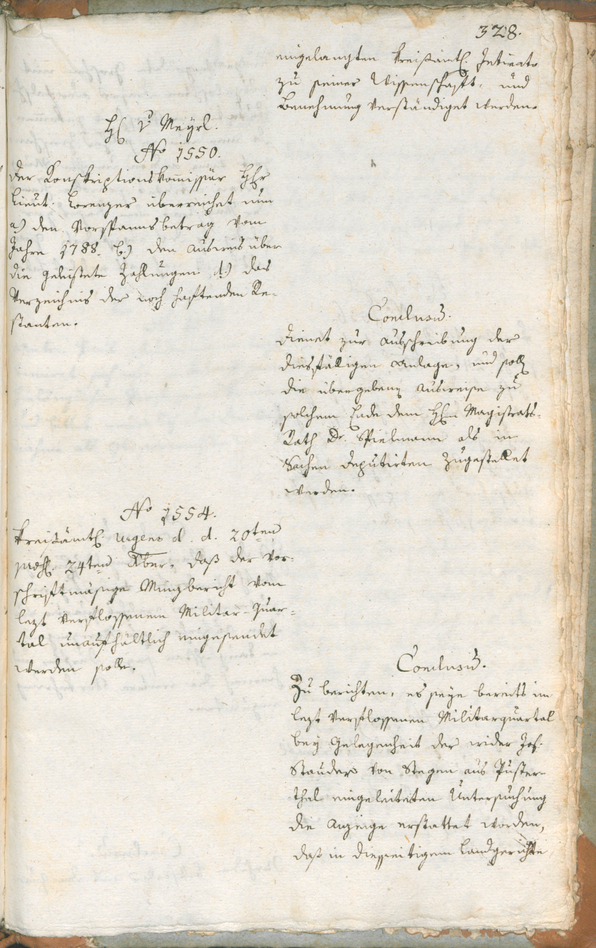 328.
eingelangten kreisämtl. Intimats
zu seiner Wissenschaft, und
Benehmung verständiget werden.
H. v. Meyrl.
No 1550.
Der Konskriptionskommissär Hr.
Lieut. Lorenzer überreichet nun
a) den Vorspannsbetrag vom
Jahre 1788. b) den Ausweis über
die geleistete Zahlungen d) das
Verzeichnis der noch haftenden Re-
stanten.
Conclusū.
Dienet zur Abschreibung der
diesfäligen Anlage, und soll
die übergebene Ausweise zu
solchem Ende dem Hr. Magistrats-
Rath Dr. Spielmann als in
Sachen deputirten zugestellet
werden.
No 1554.
Kreisämtl. urgens d. d. 20ten
24ten Xber, daß der vor-
schriftmäsige bericht vom
lezt verflossenem Militar-Quar-
tal unaufhältlich eingesendet
werden solle.
Conclusū.
Zu berichten, es seye bereits im
lezt verflossenen Militarquartal
bey Gelegenheit der wider Jos.
Stauder von Stegen aus Puster-
thal eingeleiteten Untersuchung
die Anzeige erstattet worden,
daß in diesseitigem Landgerichte